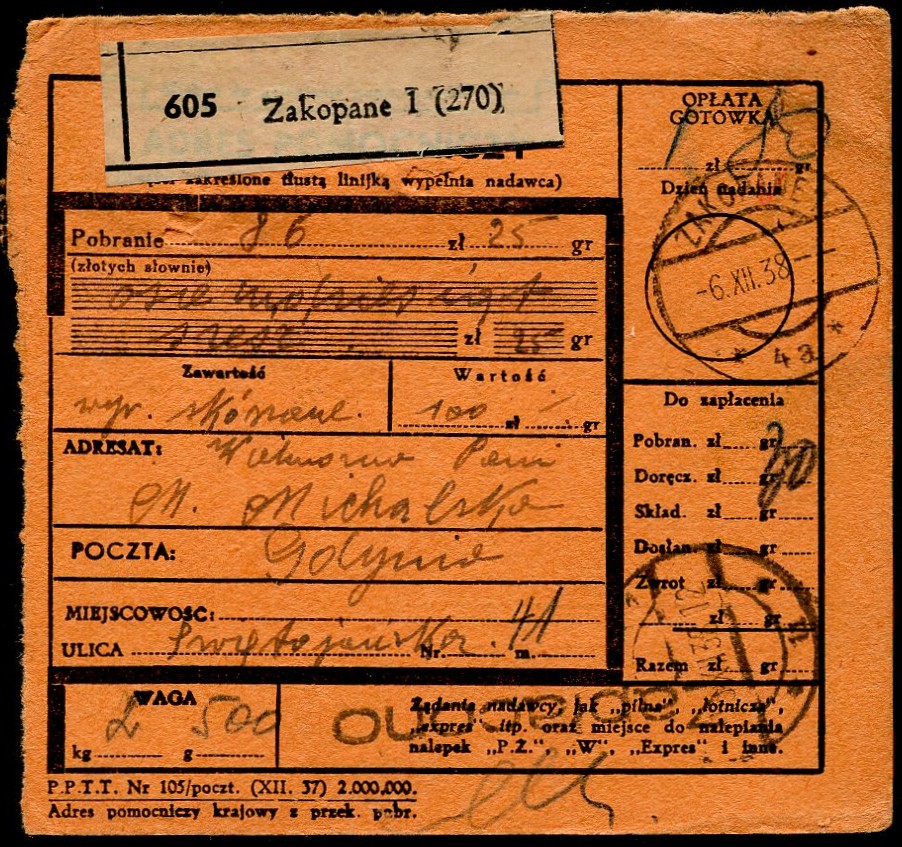 605 Zakopane 1 (270)
zakreślone tłustą linijką wypełnia nadawca)
OPŁATA
GOTÓWKĄ
zł gr
Dzień nadania
ZAKOPANE
-6.XII.38
* 4a *
Pobranie 86 zł 25 gr
(złotych słownie)
sześć zł 25 gr
Zawartość Wartość
wyr. skórzane. 100 zł gr
ADRESAT: Wielmożna Pani
M. Michalska
POCZTA: Gdynia
MIEJSCOWOŚĆ:
ULICA Świętojańska Nr. 41 m.
Do zapłacenia
Pobran. zł gr
Doręcz. zł gr
Skład. zł gr
Dosłan. zł gr
Zwrot zł gr
zł gr
Razem zł gr
WAGA
2 500
kg g
Zapłacono
Żądania nadawcy, jak „pilna”, „lotnicza”,
„expres” itp. oraz miejsce do nalepiania
nalepek „P.Ż.”, „W”, „Expres” i inne.
P.P.T.T. Nr 105/poczt. (XII. 37) 2.000.000.
Adres pomocniczy krajowy z przek. pobr.